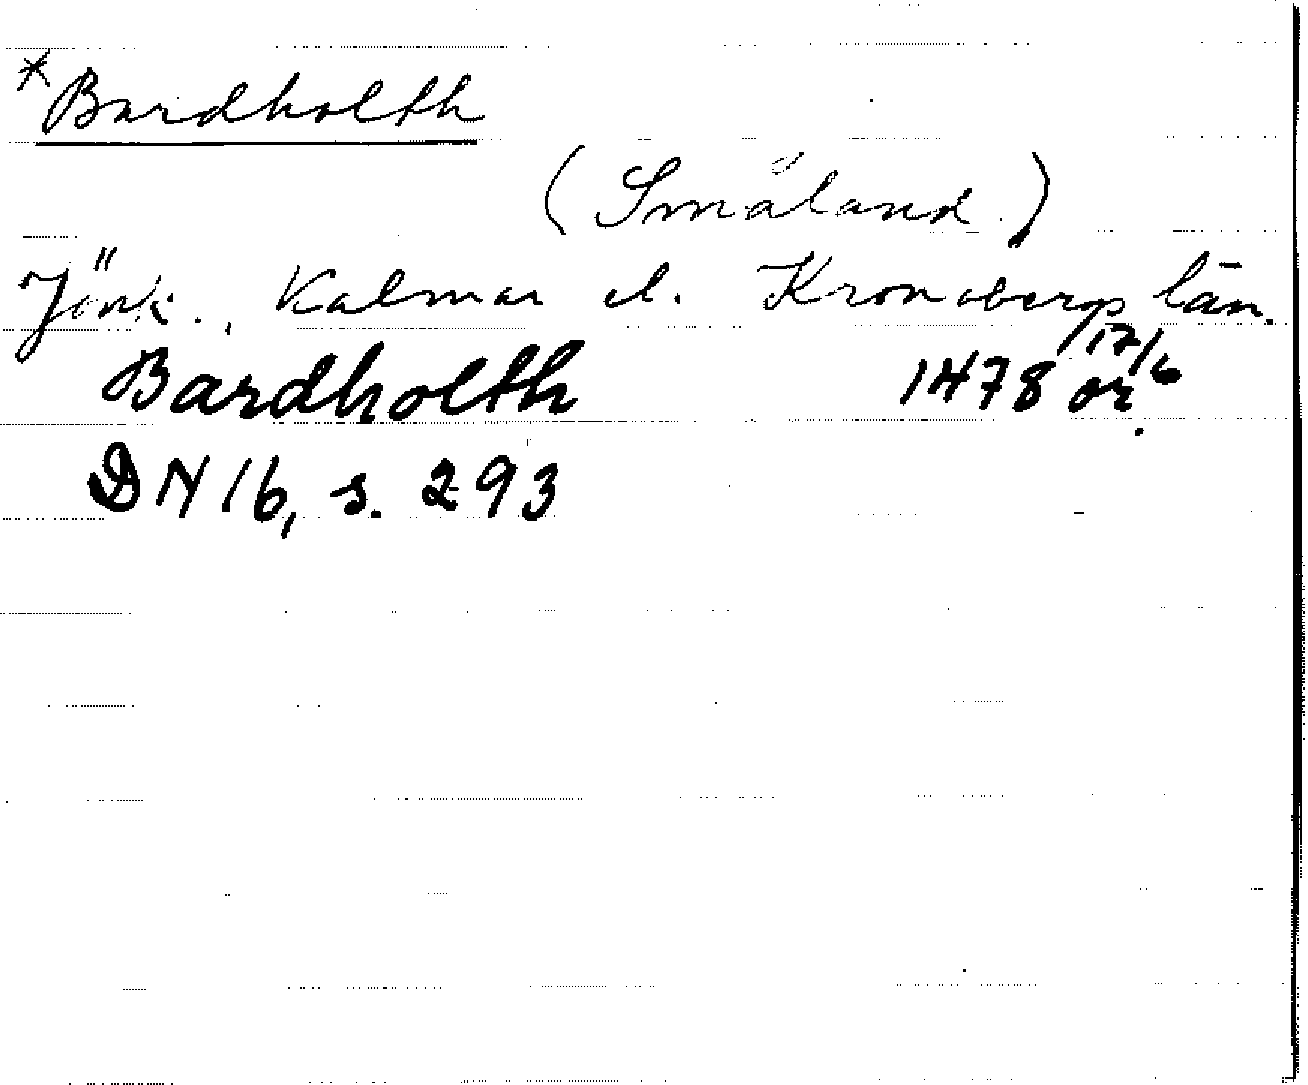 *Bardholth
(Småland.)
Jönk., Kalmar el. Kronobergs län.
Bardholth 1478 17/6 or.
DN 16, s. 293